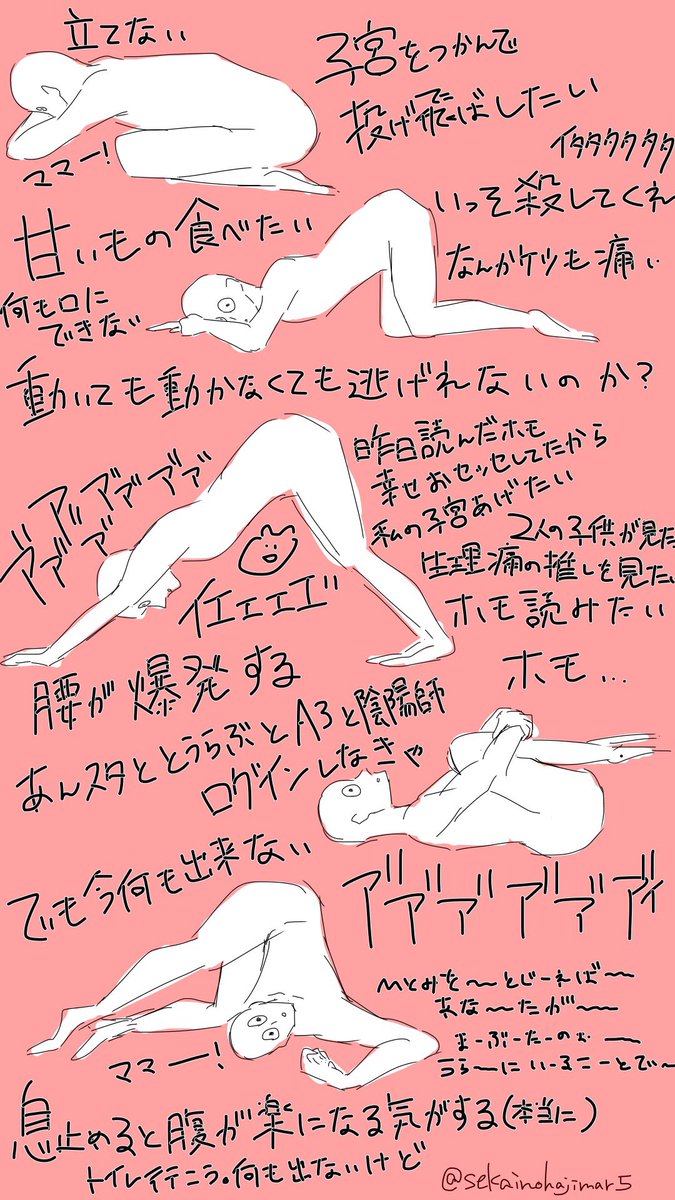 立てない
子宮をつかんで
投げ飛ばしたい
ママー!
イタタタタタタ
いっそ殺してくれ
甘いもの食べたい
なんかケツも痛い
何も口に
できない
動いても動かなくても逃げれないのか?
昨日読んだホモ
幸せおセッセしてたから
私の子宮あげたい
2人の子供が見た
生理痛の推しを見たい
イエエエエ゛
ホモ読みたい
ホモ…
腰が爆発する
あんスタととうらぶとA3と陰陽師
ログインしなきゃ
でも今何も出来ない
ひとみを〜とじーれば〜
あな〜たが〜
まーぶーたーのぉー
うら〜にいーるこーとで〜
ママー!
息止めると腹が楽になる気がする(本当に)
トイレ行こう。何も出ないけど
@sekainohajimar5